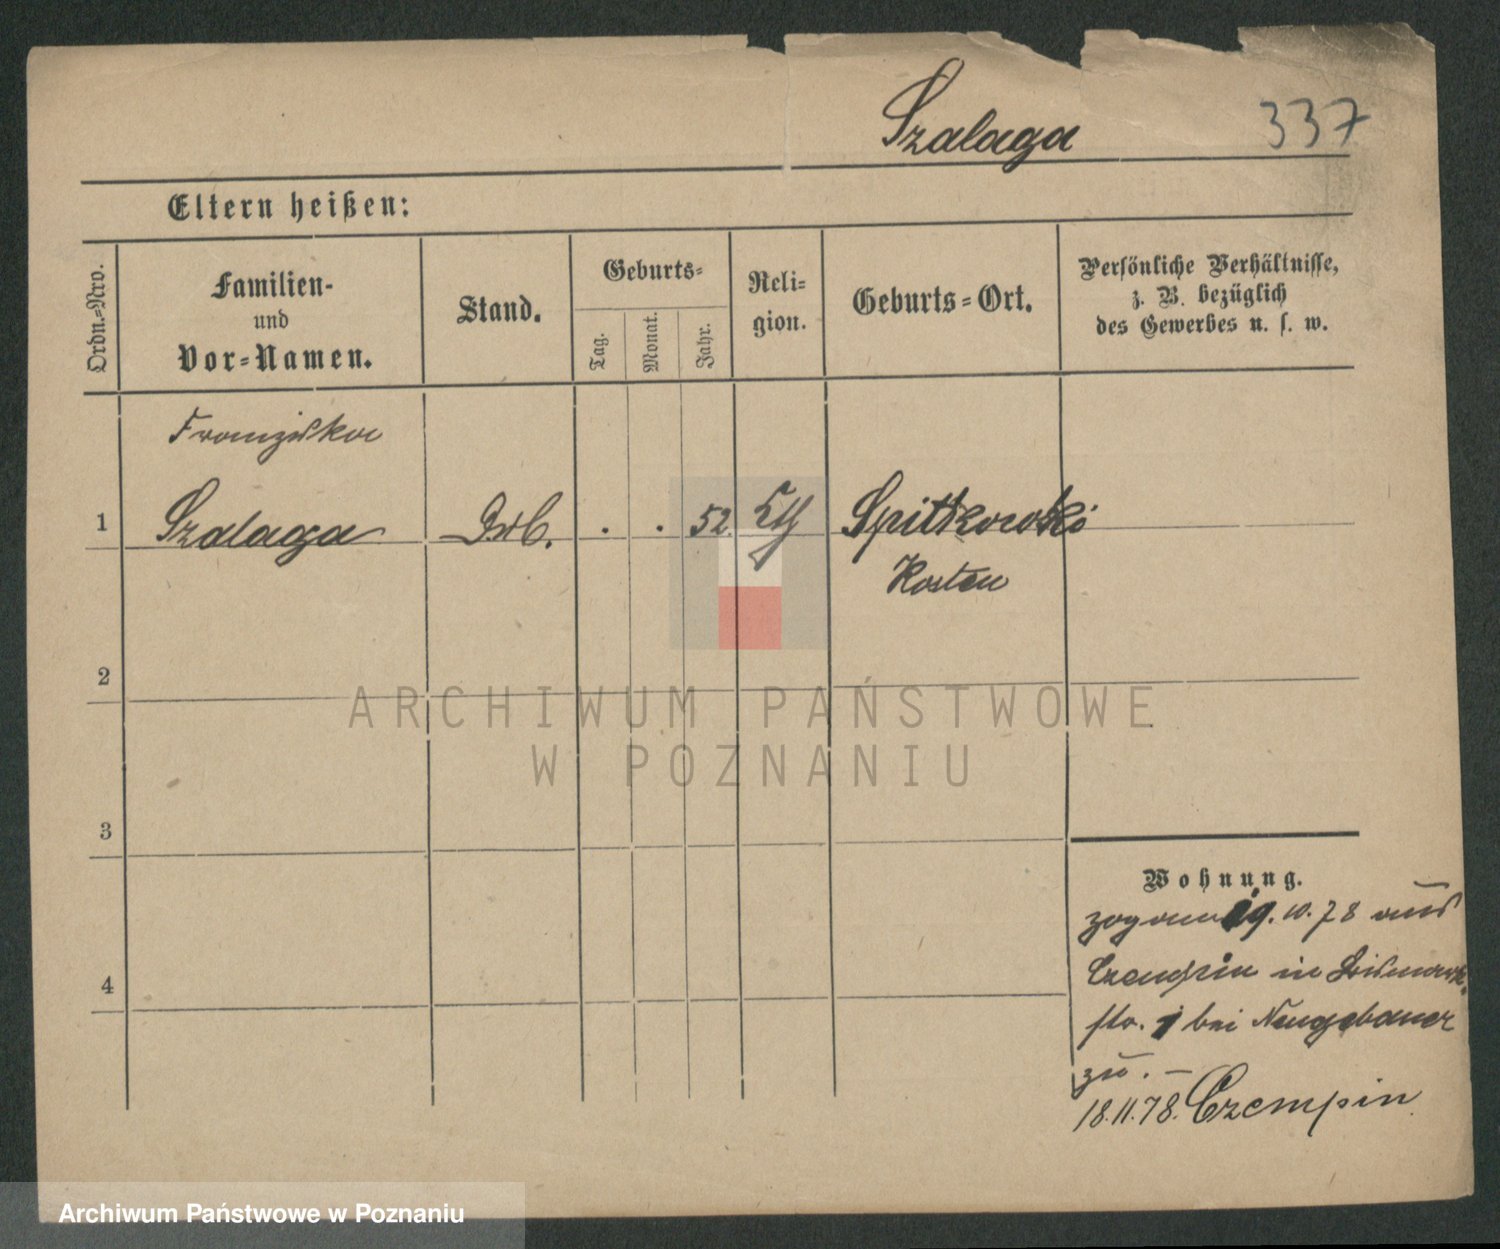 Szalaga 337
Eltern heißen:
Ordn.=Nro.
Familien-
und
Vor=Namen.
Stand.
Geburts=
Tag.
Monat.
Jahr.
Reli=
gion.
Geburts=Ort.
Persönliche Verhältnisse,
z. B. bezüglich
des Gewerbes u. s. w.
Franziska
1 Szalaga . . 52. Spitkowki
Kosten
2
3
4
Wohnung.
zog am 19. 10. 78 aus
Czempin in Bismarck
str. 1 bei Neugebauer
zu. —
18.11.78. Czempin
ARCHIWUM PAŃSTWOWE
W POZNANIU
Archiwum Państwowe w Poznaniu